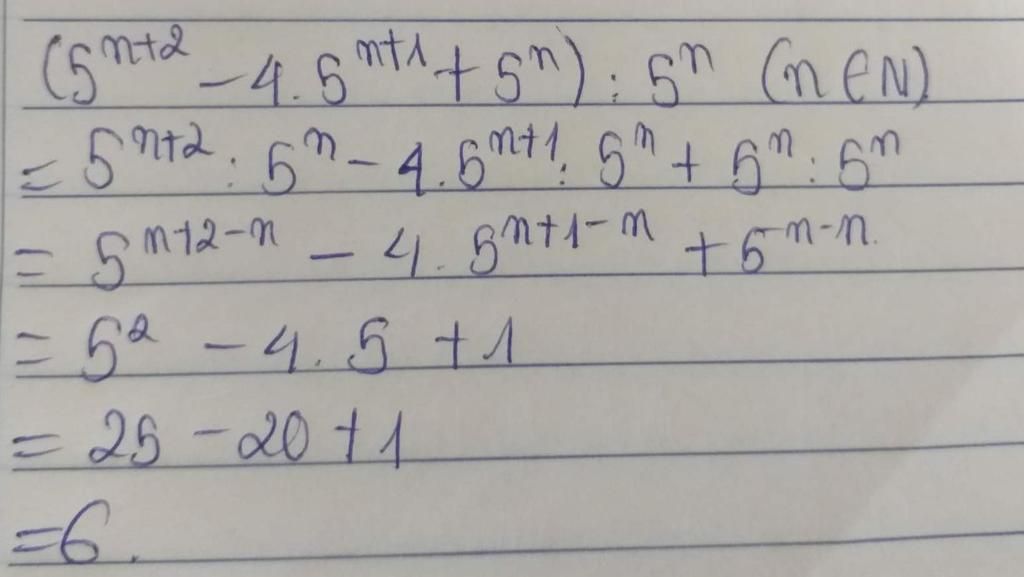 (5ⁿ⁺² - 4.5ⁿ⁺¹ + 5ⁿ) : 5ⁿ (n ∈ N)
= 5ⁿ⁺² : 5ⁿ - 4.5ⁿ⁺¹ : 5ⁿ + 5ⁿ : 5ⁿ
= 5ⁿ⁺²⁻ⁿ - 4.5ⁿ⁺¹⁻ⁿ + 5ⁿ⁻ⁿ.
= 5² - 4.5 + 1
= 25 - 20 + 1
= 6.